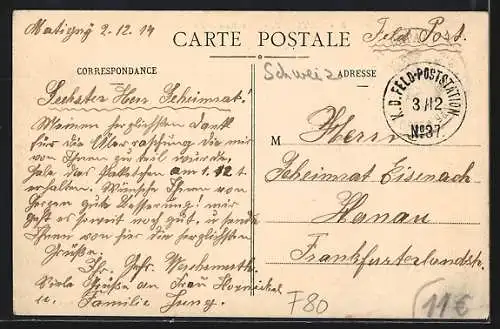 Matigny 2.12.14
Feld Post.
CARTE POSTALE
CORRESPONDANCE
Schweiz
ADRESSE
K.D. FELD-POSTSTATION
3/12
No 37
Geehrter Herr Geheimrat!
Meinen herzlichsten Dank
für die Überraschung die mir
von Ihnen zu teil wurde,
habe das Paketchen am 1.12 t.
erhalten. Wünsche Ihnen von
Herzen gute Besserung! mir
geht es soweit noch gut, u sende
Ihnen von hier die herzlichsten
Grüße.
Ihr. Gefr.
Viele Grüße an Frau
u. Familie Jung.
M Herrn
Geheimrat Eisenach
Hanau
Frankfurterlandstr.
F80
11€